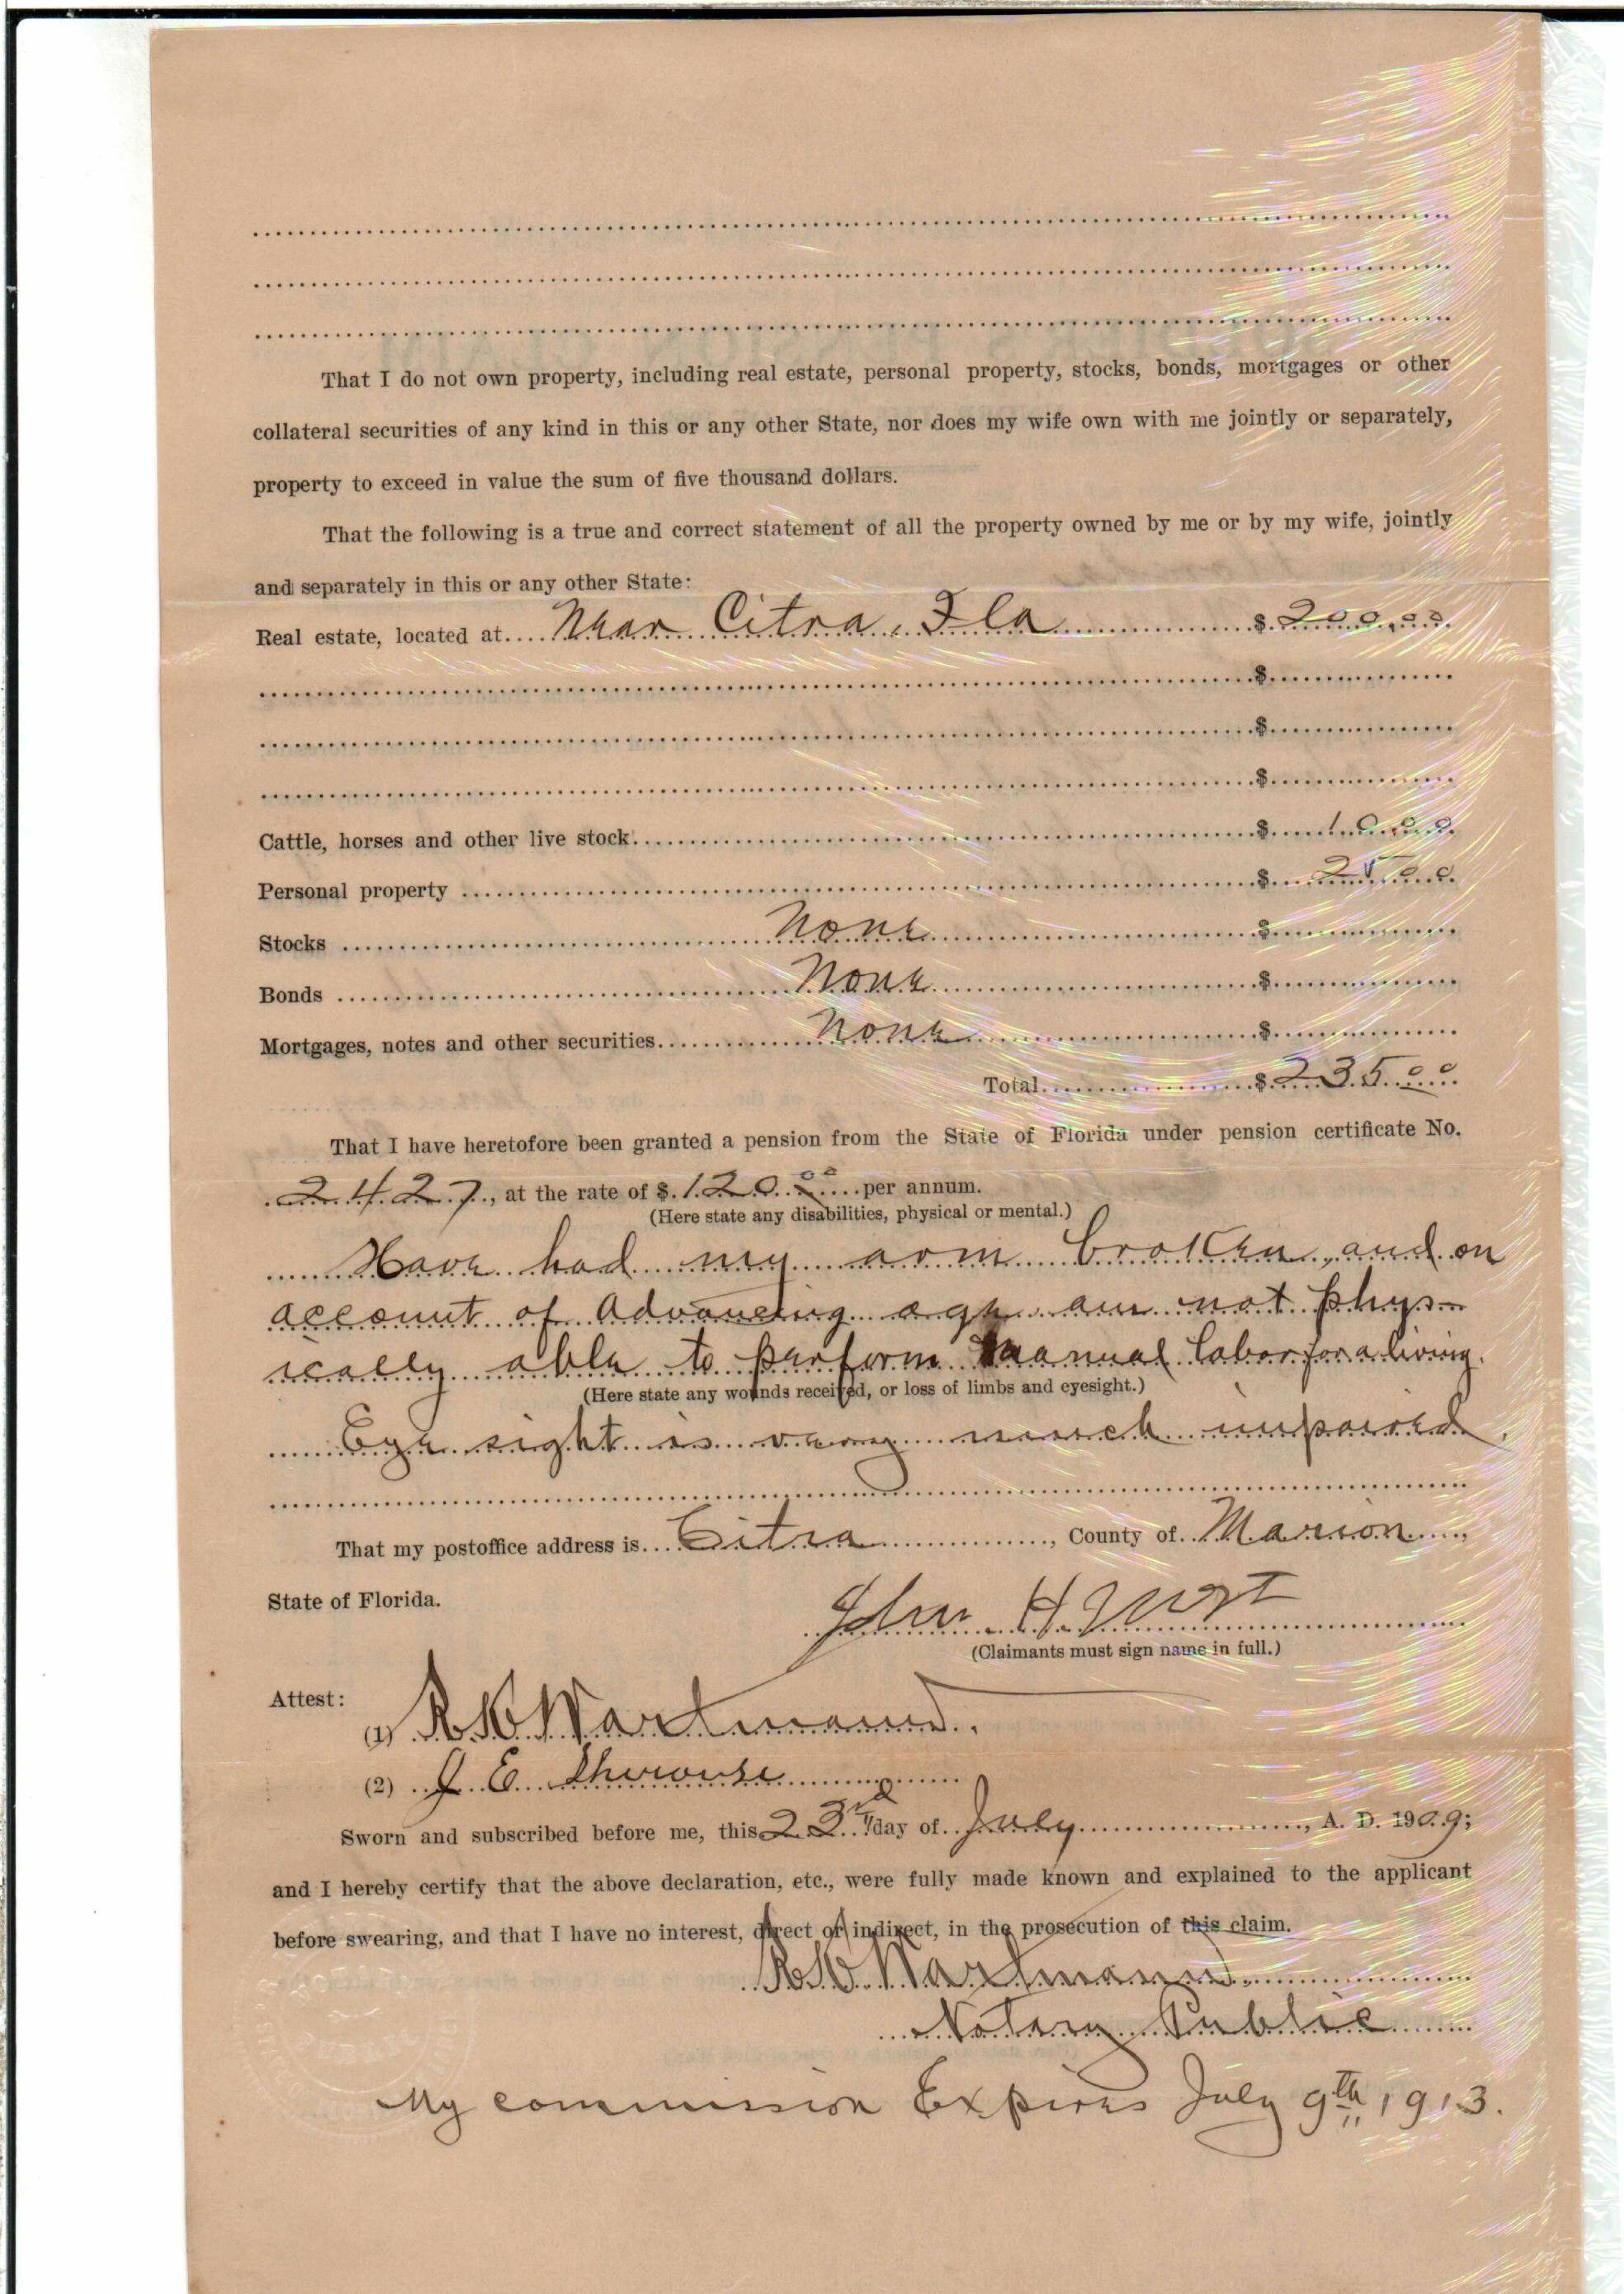 That I do not own property, including real estate, personal property, stocks, bonds, mortgages or other
collateral securities of any kind in this or any other State, nor does my wife own with me jointly or separately,
property to exceed in value the sum of five thousand dollars.
That the following is a true and correct statement of all the property owned by me or by my wife, jointly
and separately in this or any other State:
Real estate, located at Near Citra, Fla $ 200.00
$
$
$
Cattle, horses and other live stock $ 10.00
Personal property $ 25 00
Stocks None $
Bonds None $
Mortgages, notes and other securities None $
Total $ 235.00
That I have heretofore been granted a pension from the State of Florida under pension certificate No.
2427, at the rate of $ 120 00 per annum.
(Here state any disabilities, physical or mental.)
Have had my arm broken, and on
account of advancing age am not phys-
ically able to perform manual labor for a living.
(Here state any wounds received, or loss of limbs and eyesight.)
Eye sight is very much impaired.
That my postoffice address is Citra, County of Marion,
State of Florida.
John H.
(Claimants must sign name in full.)
Attest:
(1) Wartmann.
(2) J. E.
Sworn and subscribed before me, this 23rd day of July, A. D. 1909;
and I hereby certify that the above declaration, etc., were fully made known and explained to the applicant
before swearing, and that I have no interest, direct or indirect, in the prosecution of this claim.
Wartmann.
Notary Public
My commission Expires July 9th, 1913.